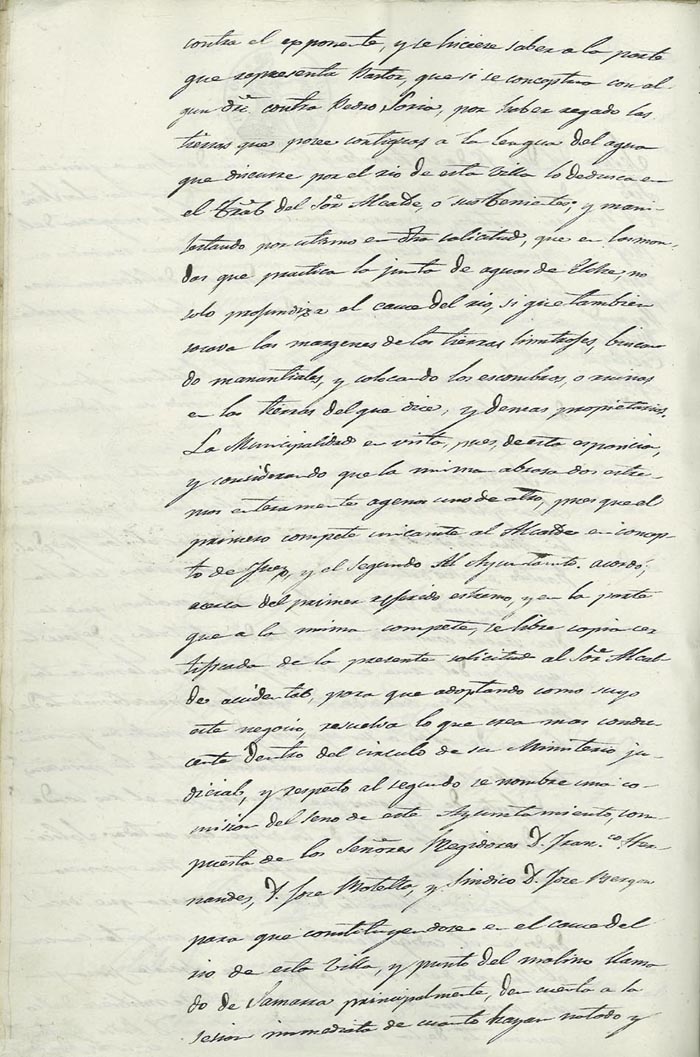 contra el exponente, y se hiciese saber a la parte
que representa Pastor, que si se conceptua con al-
gun dro. contra Pedro Soria, por haber regado las
tierras que posee contiguas a la lengua del agua
que discurre por el rio de esta Villa lo deduzca en
el Trab. del Sor. Alcalde, o sus tenientes; y mani-
festando por ultimo en dha solicitud, que en las mon-
das que practica la junta de aguas de Elche no
solo profundiza el cauce del rio, si que tambien
socava las margenes de las tierras limitrofes, buscan-
do manantiales, y colocando los escombros, o ruinas
en las tierras del que dice, y demas propietarios.
La Municipalidad en vista, pues, de esta esposicion,
y considerando que la misma abrasa dos estre-
mos enteramente agenos uno de otro, pues que el
primero compete unicamte. al Alcalde en concep-
to de Juez, y el segundo Al Ayuntamto. acordó;
acerca del primer referido estremo, y en la parte
que a la misma compete, se libre copia cer-
tificada de la presente solicitud al Sor. Alcal-
de accidental, para que adoptando como suyo
este negocio, resuelva lo que crea mas condu-
cente dentro del circulo de su Ministerio ju-
dicial, y respecto al segundo se nombre una co-
mision del seno de este Ayuntamiento, com-
puesta de los Señores Regidores D. Fran.co Her-
nandes, D. Jose Botella, y Sindico D. Jose
para que constituyendose en el cauce del
rio de esta Villa, y punto del molino llama-
do de Samarra principalmente, den cuenta a la
sesion immediata de cuanto hayan notado y